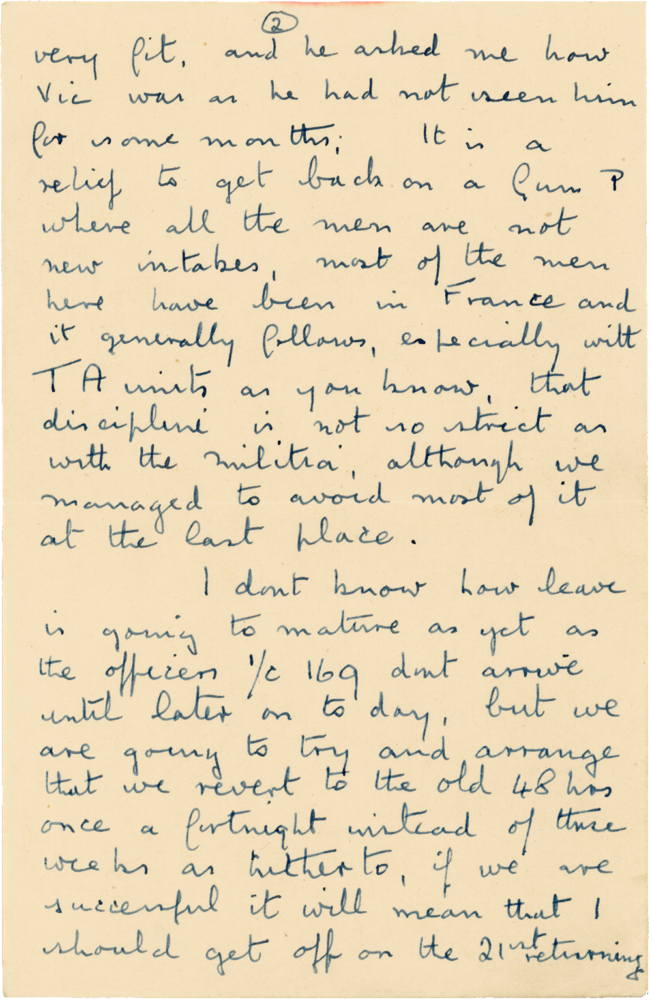 2
very fit, and he asked me how
Vic was as he had not seen him
for some months; It is a
relief to get back on a Gun P
where all the men are not
new intakes, most of the men
here have been in France and
it generally follows, especially with
T A units as you know, that
discipline is not so strict as
with the militia, although we
managed to avoid most of it
at the last place.
I dont know how leave
is going to mature as yet as
the officers i/c 169 dont arrive
until later on to day, but we
are going to try and arrange
that we revert to the old 48 hrs
once a fortnight instead of three
weeks as hitherto, if we are
successful it will mean that I
should get off on the 21st returning